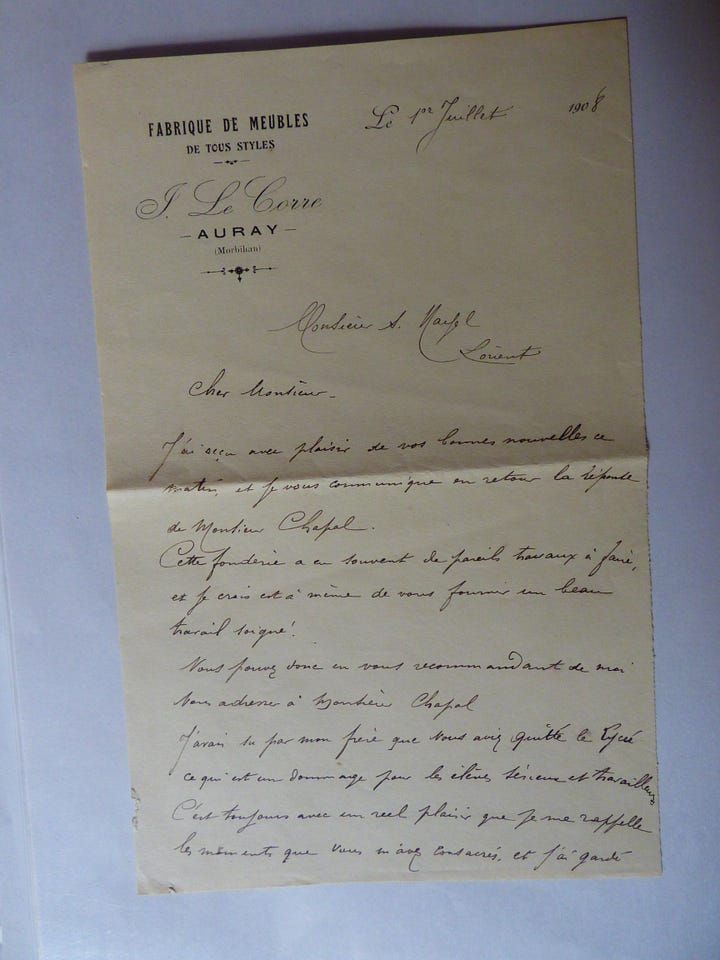 FABRIQUE DE MEUBLES
DE TOUS STYLES
J. Le Corre
AURAY
(Morbihan)
Le 1er Juillet 1908
Monsieur A.
Lorient
Cher Monsieur
J'ai reçu avec plaisir de vos bonnes nouvelles ce
matin, et je vous communique en retour la réponse
de Monsieur Chapal.
Cette fonderie a eu souvent de pareils travaux à faire,
et je crois est à même de vous fournir un beau
travail soigné.
Vous pouvez donc en vous recommandant de moi
vous adresser à Monsieur Chapal
J'avais su par mon frère que vous aviez quitté le Lycée
ce qui est un dommage pour les élèves sérieux et travailleurs
C'est toujours avec un reel plaisir que je me rappelle
les moments que vous m'avez consacrés, et j'ai gardé